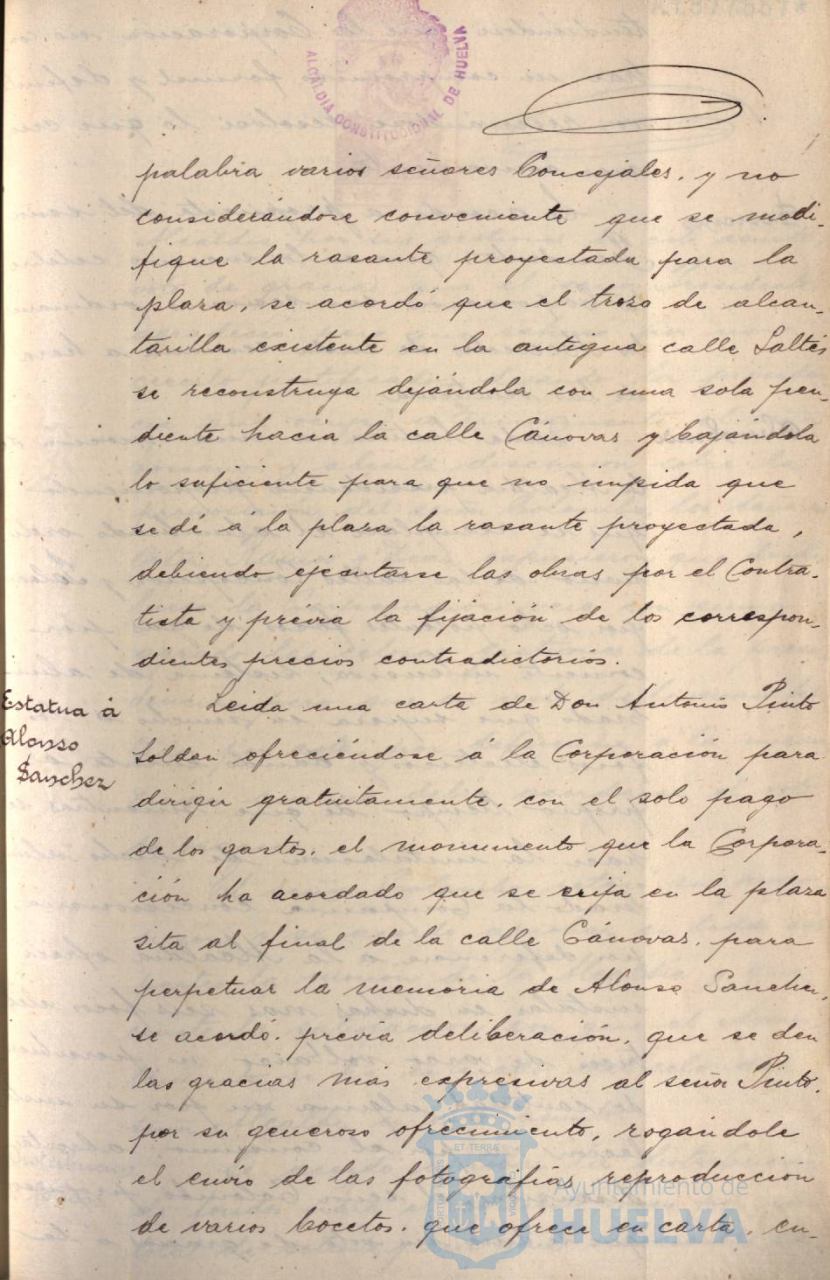 ALCALDIA CONSTITUCIONAL DE HUELVA
palabra varios señores Concejales. y no
considerándose conveniente que se modi-
fique la rasante proyectada para la
plaza, se acordó que el trozo de alcan-
tarilla existente en la antigua calle Saltés
se reconstruya dejándola con una sola pen-
diente hacia la calle Cánovas y bajándola
lo suficiente para que no impida que
se dé á la plaza la rasante proyectada,
debiendo ejecutarse las obras por el Contra-
tista y prévia la fijación de los correspon-
dientes precios contradictorios.
Estatua á
Alonso
Sanchez
Leida una carta de Don Antonio Pinto
Soldan ofreciéndose á la Corporación para
dirigir gratuitamente. con el solo pago
de los gastos. el monumento que la Corpora-
ción ha acordado que se erija en la plaza
sita al final de la calle Cánovas. para
perpetuar la memoria de Alonso Sanchez,
se acordó. prévia deliberación, que se den
las gracias más expresivas al señor Pinto.
por su generoso ofrecimiento, rogándole
el envío de las fotografías reproducción
de varios bocetos. que ofrece en carta, en-
ET TERRA
Ayuntamiento de
HUELVA